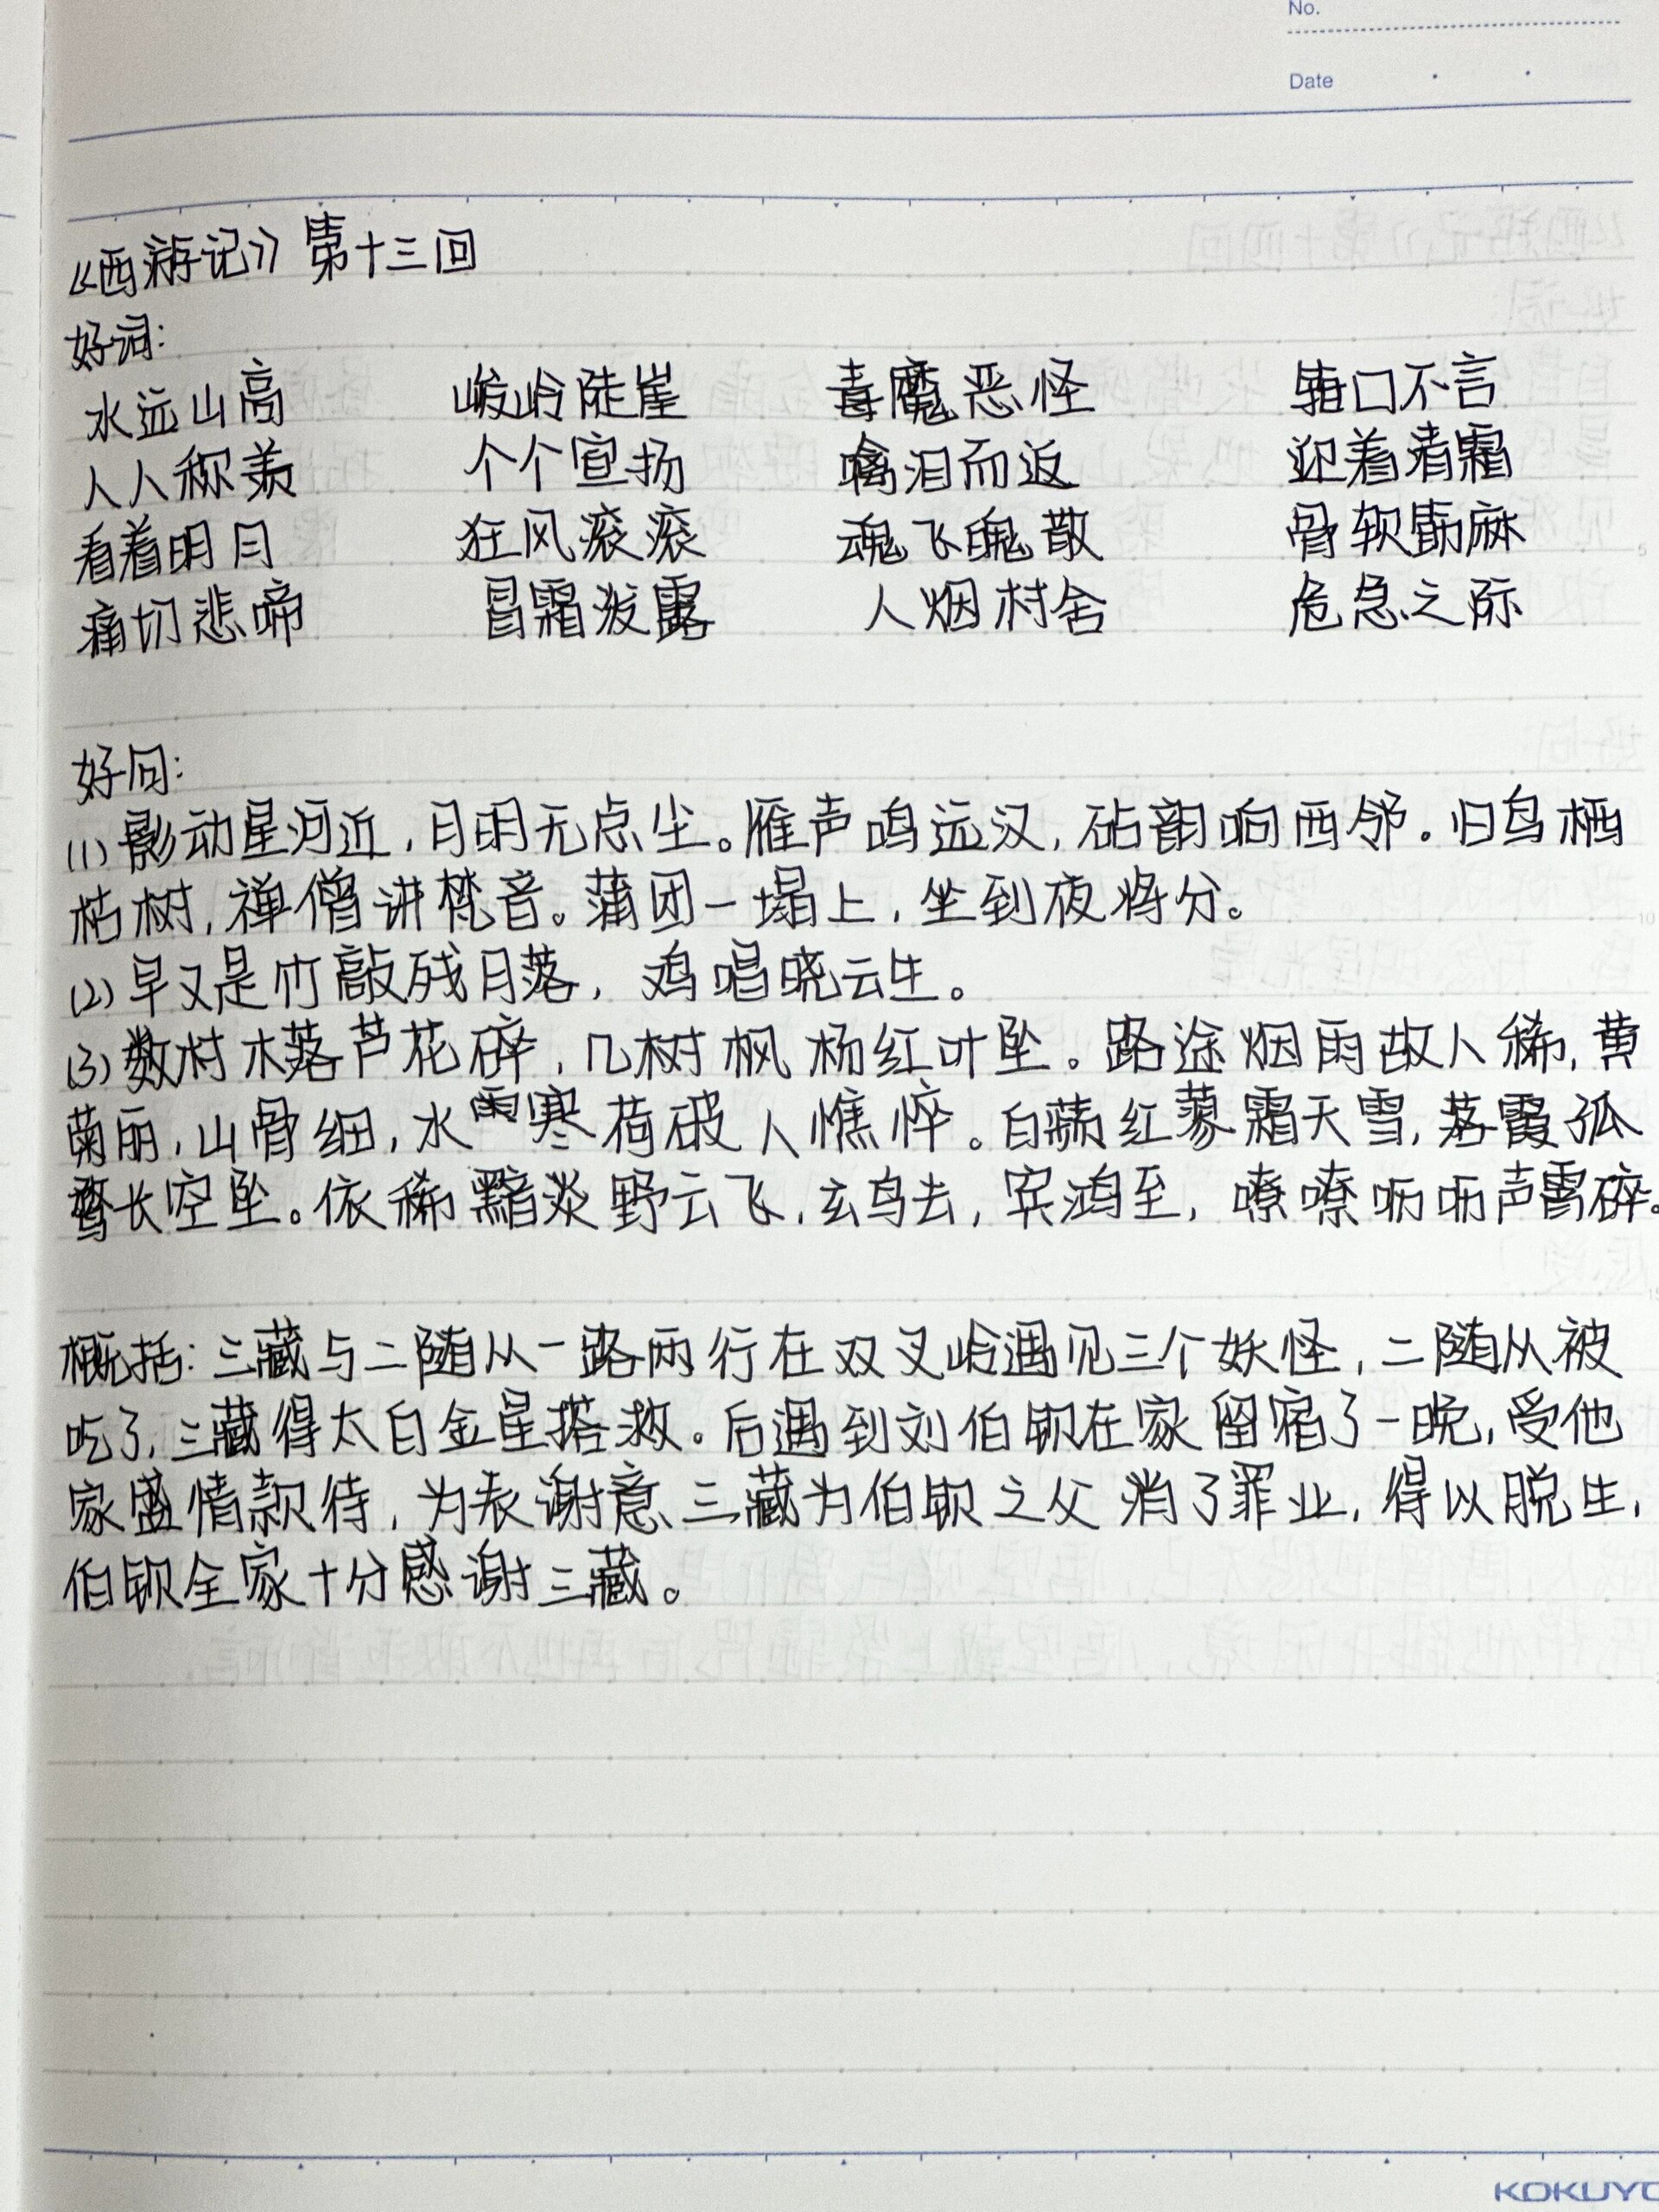 No.
Date
《西游记》第十三回
好词:
水远山高 峻岭陡崖 毒魔恶怪 箝口不言
人人称羡 个个宣扬 噙泪而返 迎着清霜
看着明月 狂风滚滚 魂飞魄散 骨软筋麻
痛切悲啼 冒霜泼露 人烟村舍 危急之际
好句:
(1)影动星河近,月明无点尘。雁声鸣远汉,砧韵响西邻。归鸟栖
枯树,禅僧讲梵音。蒲团一塌上,坐到夜将分。
(2)早又是竹敲残月落,鸡唱晓云生。
(3)数村木落芦花碎,几树枫杨红叶坠。路途烟雨故人稀,黄
菊丽,山骨细,水寒荷破人憔悴。白蘋红蓼霜天雪,落霞孤
鹜长空坠。依稀黯淡野云飞,玄鸟去,宾鸿至,嘹嘹呖呖声宵碎。
概括:三藏与二随从一路西行在双叉岭遇见三个妖怪,二随从被
吃了,三藏得太白金星搭救。后遇到刘伯钦在家留宿了一晚,受他
家盛情款待,为表谢意三藏为伯钦之父消了罪业,得以脱生,
伯钦全家十分感谢三藏。
KOKUYO